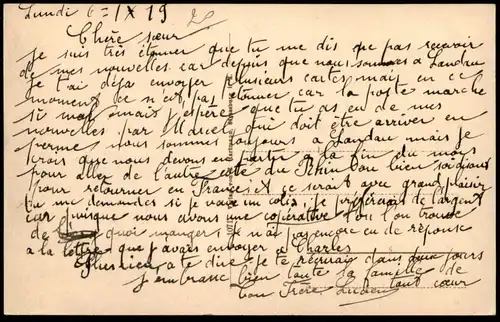 Lundi 6 = / X 19
Chère sœur
je suis très étonner que tu me dis que pas recevoir
de mes nouvelles car depuis que nous sommes a Landau
je t'ai déja envoyer plusieurs cartes, mais en ce
moment ce n'est pas étonner car la poste marche
si mal mais j'espère que tu as eu de mes
nouvelles par Marcel qui doit être arriver en
perme nous sommes toujours a Landau mais je
crois que nous devons en partir a la fin du mois
pour aller de l'autre côté du Rhin ou bien soi disant
pour retourner en France et ce serait avec grand plaisir
tu me demandes si je veux un colis, je préfererais de l'argent
car puisque nous avons une copérative ou l'on trouve
de quoi manger, je n'ai pas encore eu de réponse
a la lettre que j'avais envoyer a Charles
Plus rien a te dire je te récrirais dans deux jours
j'embrasse bien toute la famille de
ton Frère Lucien tout cœur